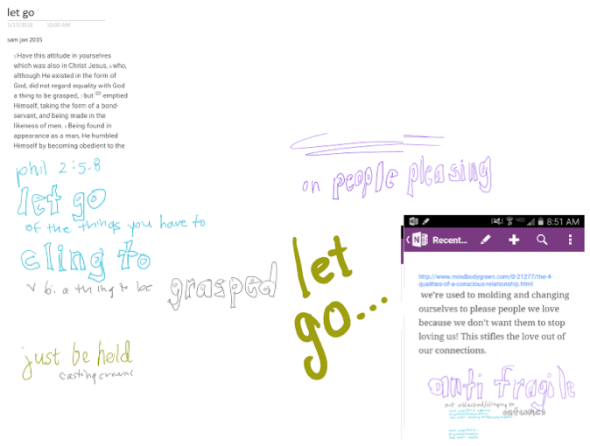 let go
10:00 AM
sam jan 2015
5 Have this attitude in yourselves
which was also in Christ Jesus, 6 who,
although He existed in the form of
God, did not regard equality with God
a thing to be grasped, 7 but emptied
Himself, taking the form of a bond-
servant, and being made in the
likeness of men. 8 Being found in
appearance as a man, He humbled
Himself by becoming obedient to the
phil 2:5.8
let go
of the things you have to
cling to
v 6. a thing to be grasped
just be held
casting crowns
on people pleasing
let
go...
8:51 AM
Recent...
http://www.mindbodygreen.com/0-21277/the-4-
qualities-of-a-conscious-relationship.html
we're used to molding and changing
ourselves to please people we love
because we don't want them to stop
loving us! This stifles the love out of
our connections.
anti fragile